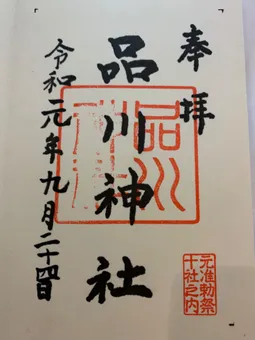 奉拝
品川神社
令和元年九月二十四日
品川
神社
元准勅祭
十社之内